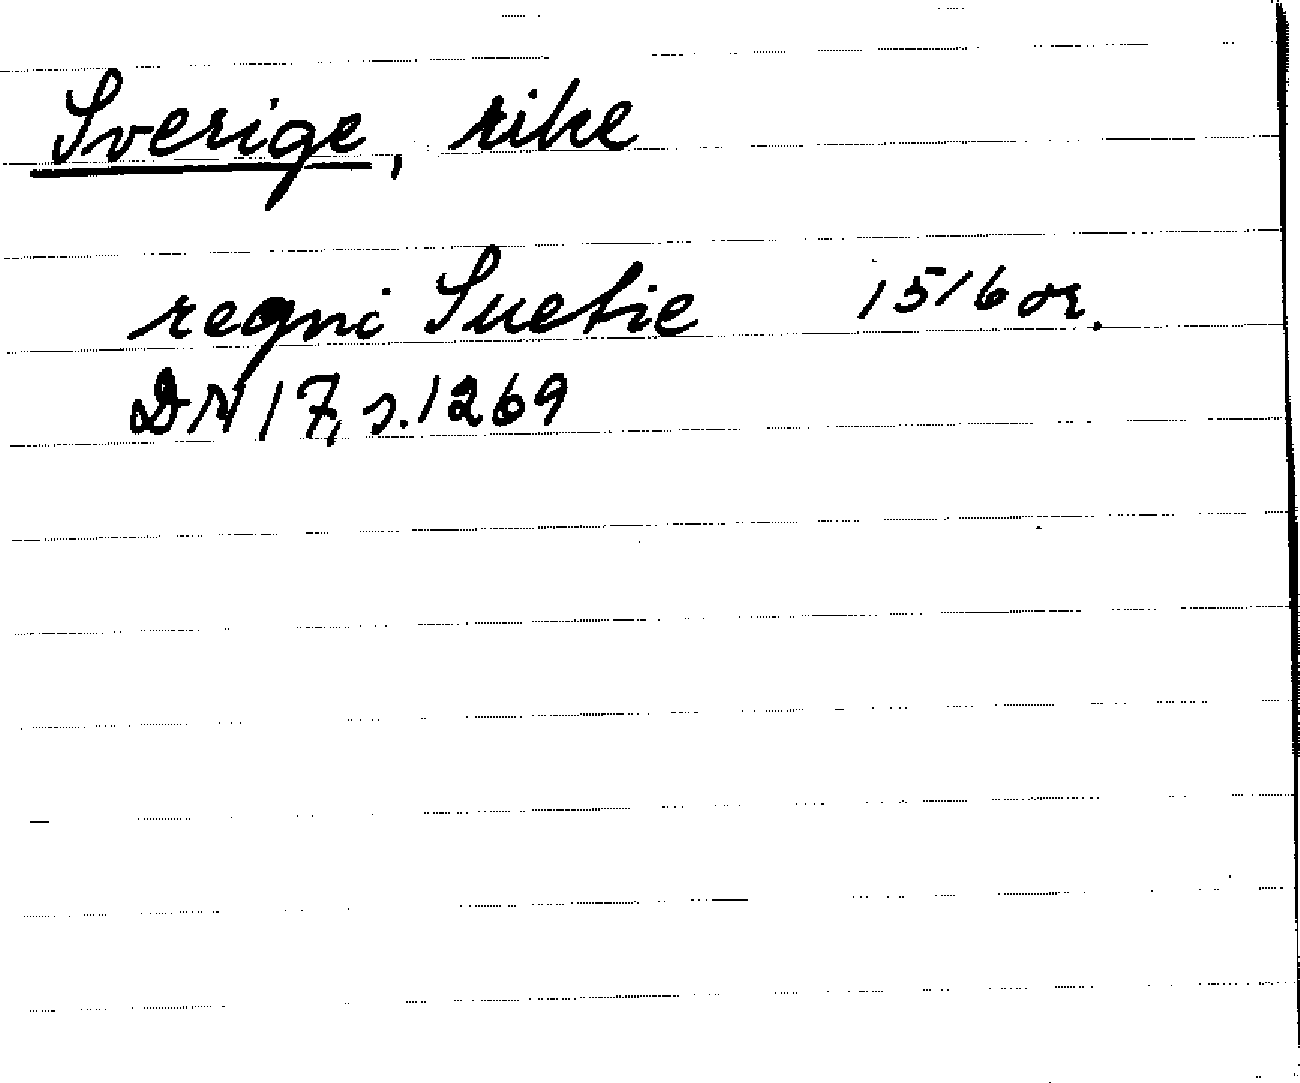 Sverige, rike
regni Suetie 1516 or.
DN 17, s. 1269